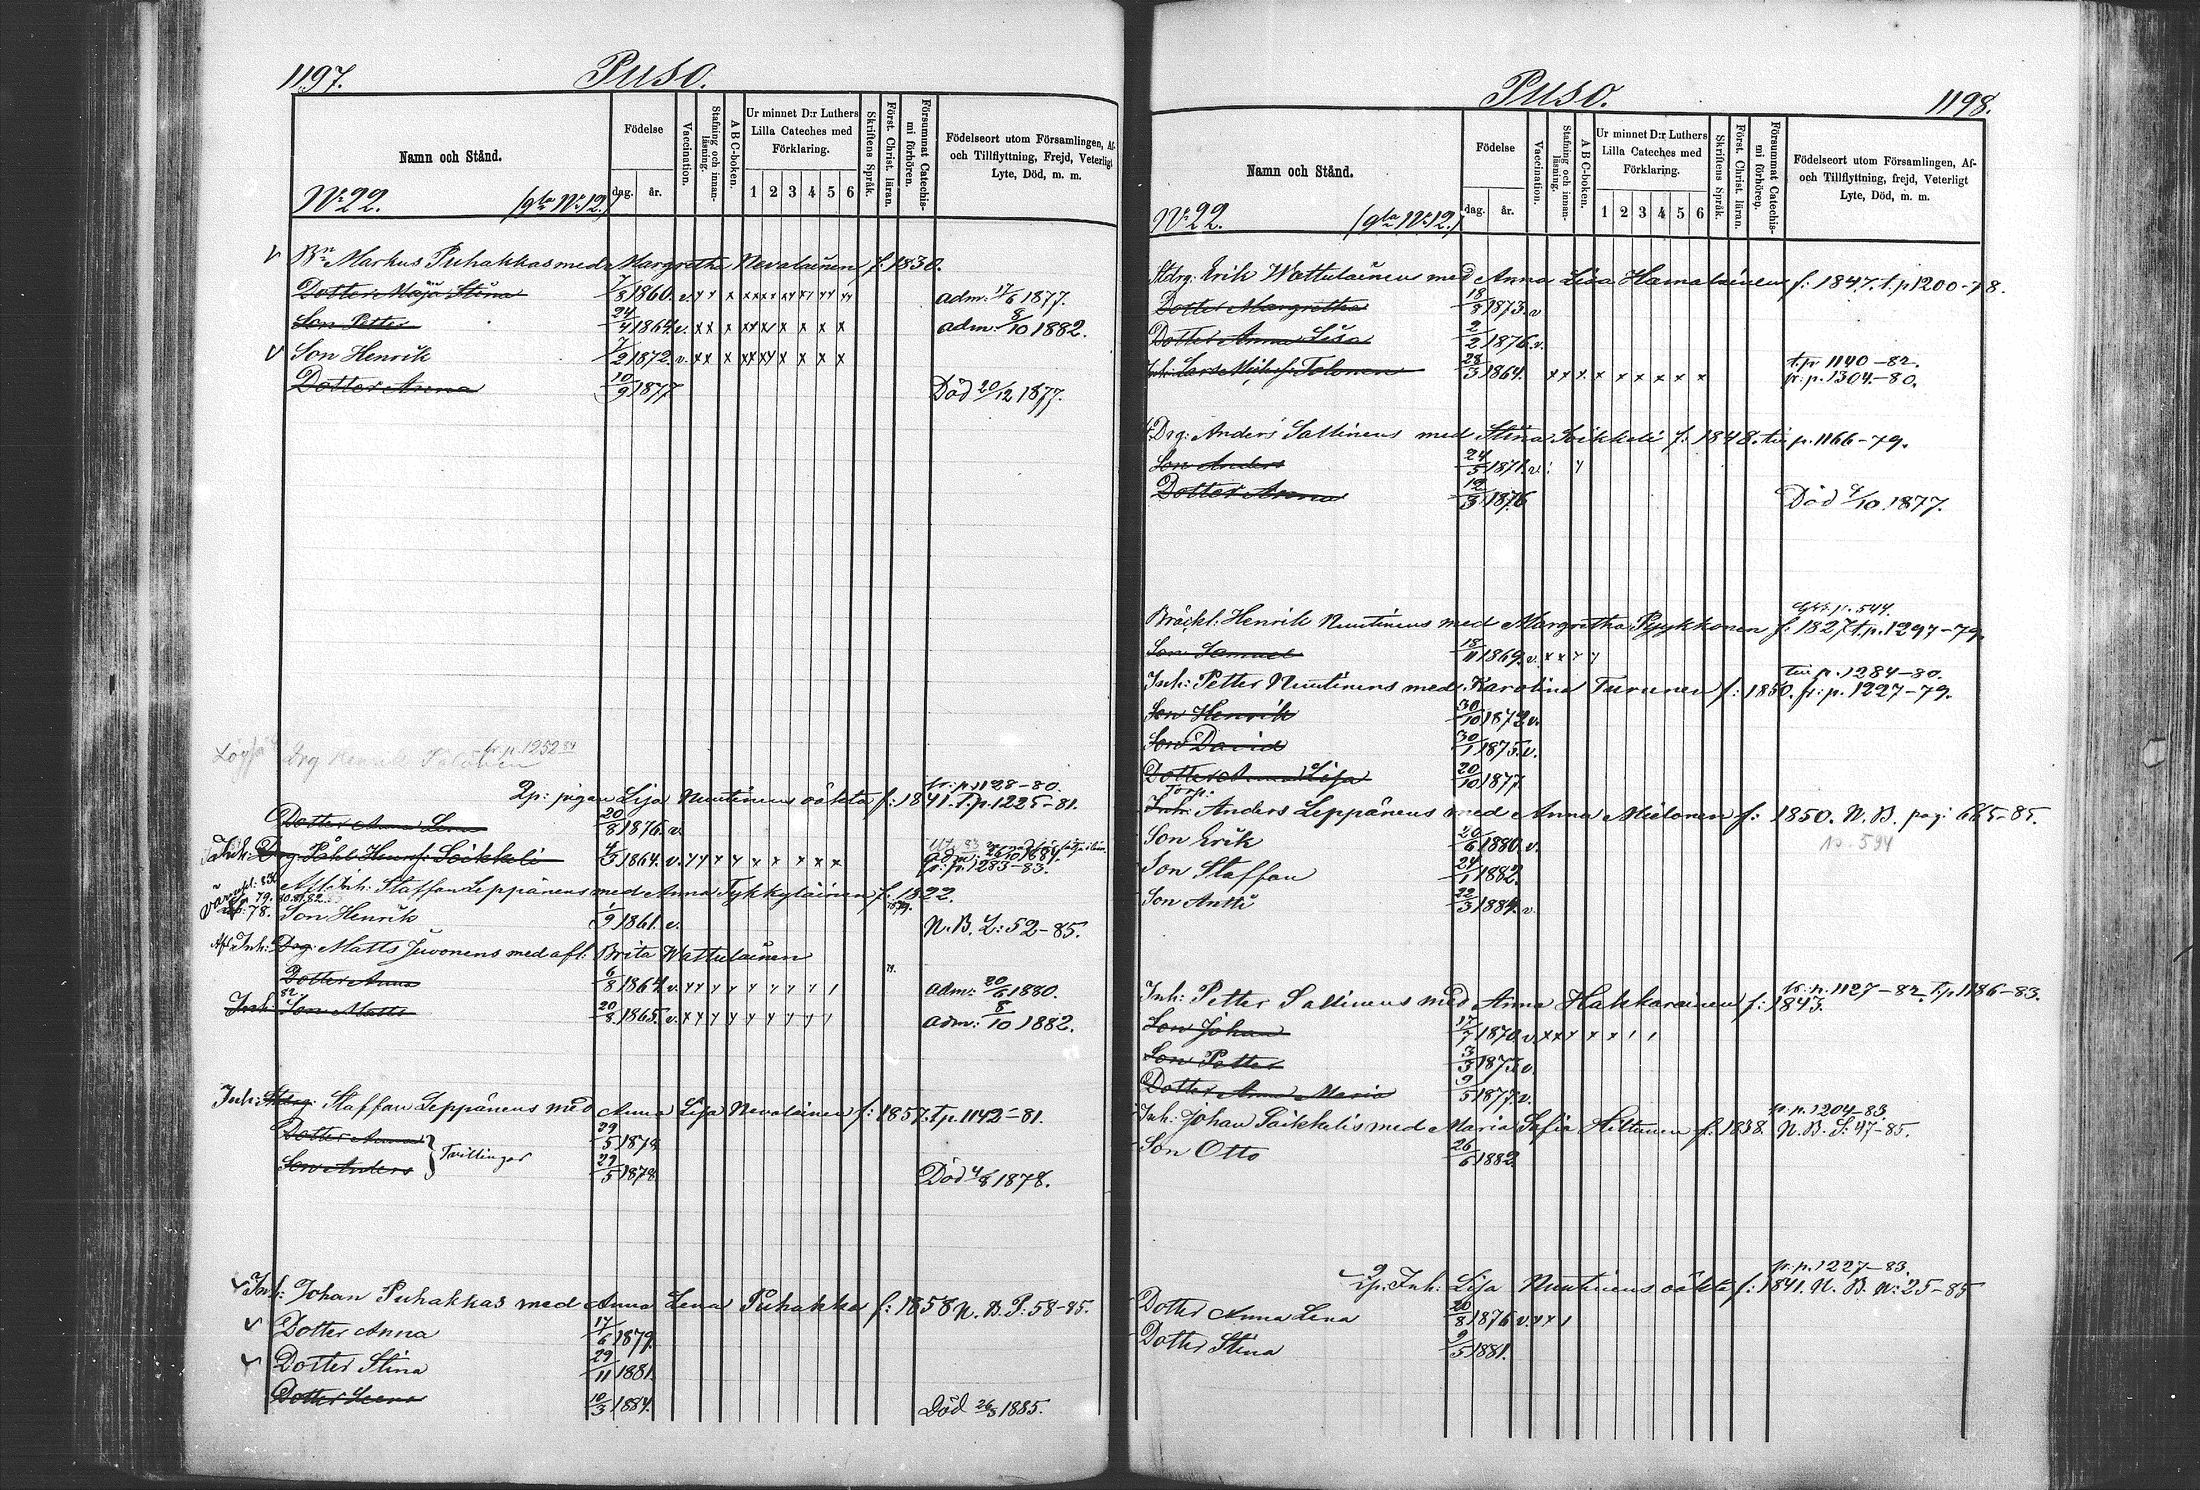 1197.
Puso.
Namn och Stånd.
Födelse
dag. år.
Vaccination.
Stafning och innan-läsning.
A B C-boken.
Ur minnet D:r Luthers
Lilla Cateches med
Förklaring.
1 2 3 4 5 6
Skriftens Språk.
Först. Christ. läran.
Försummat Catechis-mi förhören.
Födelseort utom Församlingen, Af-
och Tillflyttning, Frejd, Veterligt
Lyte, Död, m. m.
No 22. (gla No 12.)
v Bn Markus Puhakkas med Margretha Nevalainen f. 1830.
Dotter Maja Stina 7/5 1860. v. adm: 17/6 1877.
Son Petter 24/4 1864. v. adm: 8/10 1882.
v Son Henrik 7/2 1872 v.
Dotter Anna 10/9 1877 Död 20/12 1877.
fr. p. 1252 84
Drg Henrik
fr. p. 1128-80.
Lp: pigan Lisa Nuutinens oäkta f: 1841. t.p. 1225-81.
Dotter Anna Lena 20/8 1876. v.
Inh: Drg: Påhl Henr.f: Soikkeli 4/3 1864. v.
fr. p. 1283-83.
Afl. Inh: Staffan Leppänens med Anna Tykkyläinen f. 1822.
Son Henrik 1/9 1861. v. N. B. L: 52-85.
Afl. Inh: Drg: Matts Juvonens med afl. Brita Wattulainen
Dotter Anna 6/8 1864. v. adm: 20/6 1880.
Inh: 82 Son Matts 20/8 1865. v. adm: 8/10 1882.
Inh: Stdrg: Staffan Leppänens med Anna Lisa Nevalainen f: 1857. t.p. 1142-81.
Dotter Anna 29/5 1878
Tvillingar
Son Anders 29/5 1878 Död 4/8 1878.
v Inh: Johan Puhakkas med Anna Lena Puhakka f: 1858 N. B. P. 58-85.
v Dotter Anna 17/6 1879.
v Dotter Stina 29/11 1881.
Dotter Leena 10/3 1884. Död 26/5 1885.
Puso.
1198.
Namn och Stånd.
Födelse
dag. år.
Vaccination.
Stafning och innan-läsning.
A B C-boken.
Ur minnet D:r Luthers
Lilla Cateches med
Förklaring.
1 2 3 4 5 6
Skriftens Språk.
Först. Christ. läran.
Försummat Catechis-mi förhören.
Födelseort utom Församlingen, Af-
och Tillflyttning, frejd, Veterligt
Lyte, Död, m. m.
No 22. (gla No 12.)
Stdrg: Erik Wattulainens med Anna Lisa Hämäläinen f: 1847. t.p. 1200-78.
Dotter Margretha 18/8 1873. v
Dotter Anna Lisa 2/2 1876. v. t.p. 1140-82.
Inh: Lars Mich.f: Tolonen 28/3 1864. fr. p. 1304-80.
Drg: Anders Sallinens med Stina Soikkeli f: 1848. till p. 1166-79.
Son Anders 24/5 1871. v.
Dotter Anna 12/3 1876 Död 4/10 1877.
p. 544.
Bräckl: Henrik Nuutinens med Margretha Pyykkönen f: 1827 t.p. 1297-79.
Son Samuel 18/11 1869. v.
till p. 1284-80.
Inh: Petter Nuutinens med Karolina Turunen f: 1850. fr. p. 1227-79.
Son Henrik 30/10 1872 v.
Son David 30/1 1875. v.
Dotter Anna Lisa 20/10 1877
Torp:
Inh: Anders Leppänens med Anna Mielonen f: 1850. N. B. pag: 665-85.
Son Erik 20/6 1880. v. p. 594
Son Staffan 24/1 1882.
Son Antti 22/3 1884. v.
fr. p. 1127-82 t.p. 1186-83.
Inh: Petter Sallinens med Anna Hakkarainen f: 1843.
Son Johan 17/7 1870. v.
Son Petter 3/3 1873. v.
Dotter Anna Maria 9/5 1877. v.
fr. p. 1204-83.
Inh: Johan Soikkelis med Maria Sofia Hiltunen f: 1838. N. B. S: 47-85.
Son Otto 26/6 1882
fr. p. 1227-83.
Lp: Inh: Lisa Nuutinens oäkta f: 1841. N. B. N: 25-85
Dotter Anna Lena 20/8 1876 v.
Dotter Stina 9/5 1881.